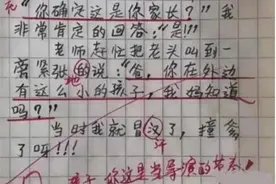 "你确定这是你家长？"我
非常肯定的回答："是!!"
老师赶忙把老头叫到一
旁紧张的说："爸，你在外边
有这么小的孩子，我妈知道
吗？"
地
当时我就冒汉了，撞爹
汗
了呀!!!
你这是当导演的